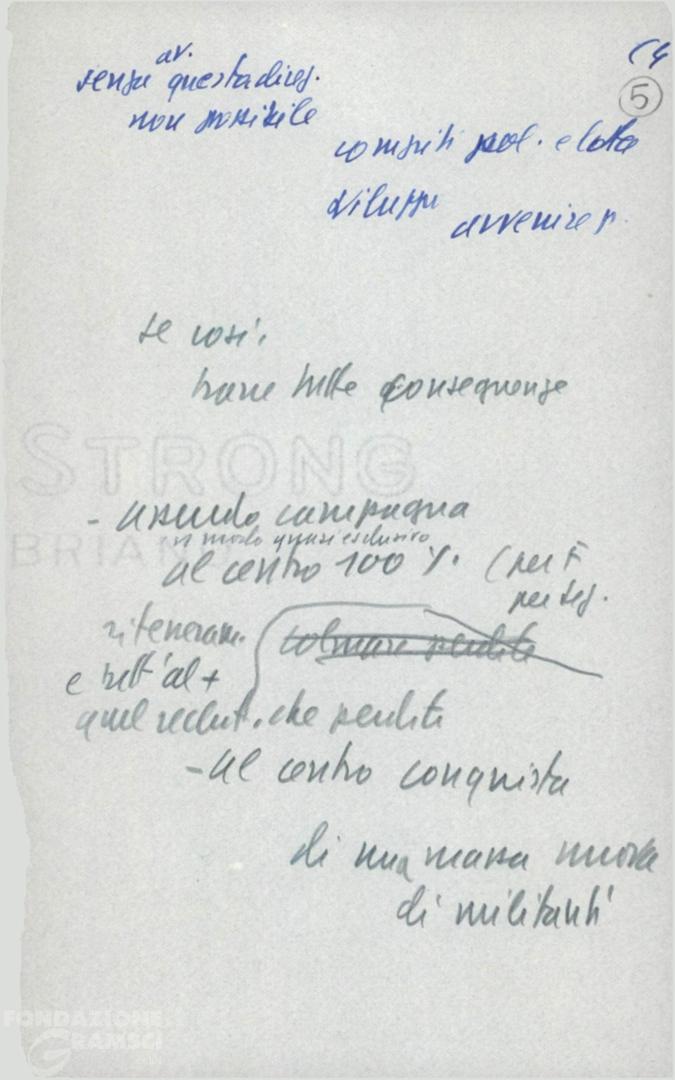 av.
senza questa direz.
non possibile
(4
5
compiti pol. e lotta
sviluppi
avvenire p.
se così,
trarre tutte conseguenze
STRONG
BRIANO
- campagna
in modo quasi esclusivo
al centro 100 %. (per F
per seg.
colmare perdite
e tutt'al +
quel reclut. che perdite
- al centro conquista
di una massa nuova
di militanti
FONDAZIONE
GRAMSCI